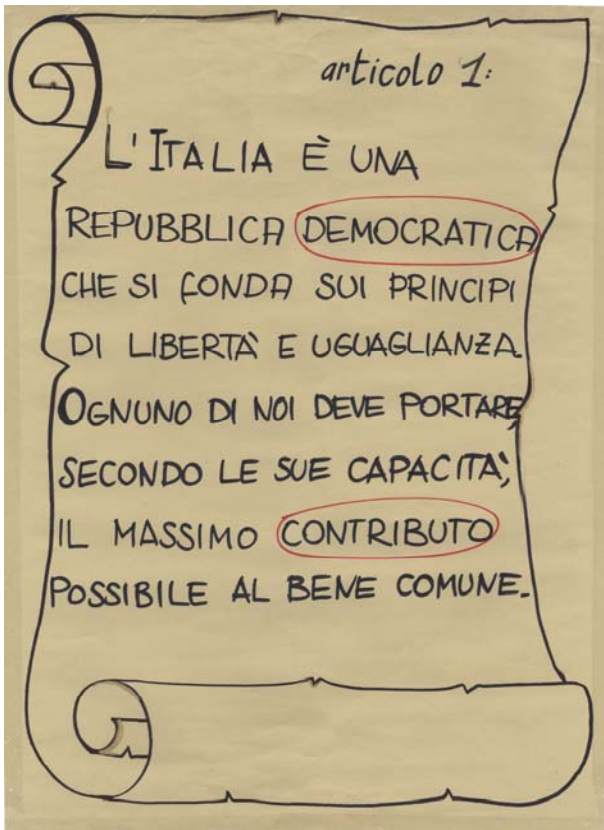 articolo 1:
L'ITALIA È UNA
REPUBBLICA DEMOCRATICA
CHE SI FONDA SUI PRINCIPI
DI LIBERTÀ E UGUAGLIANZA.
OGNUNO DI NOI DEVE PORTARE,
SECONDO LE SUE CAPACITÀ,
IL MASSIMO CONTRIBUTO
POSSIBILE AL BENE COMUNE.